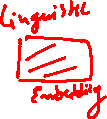 Linguistic
Embedding